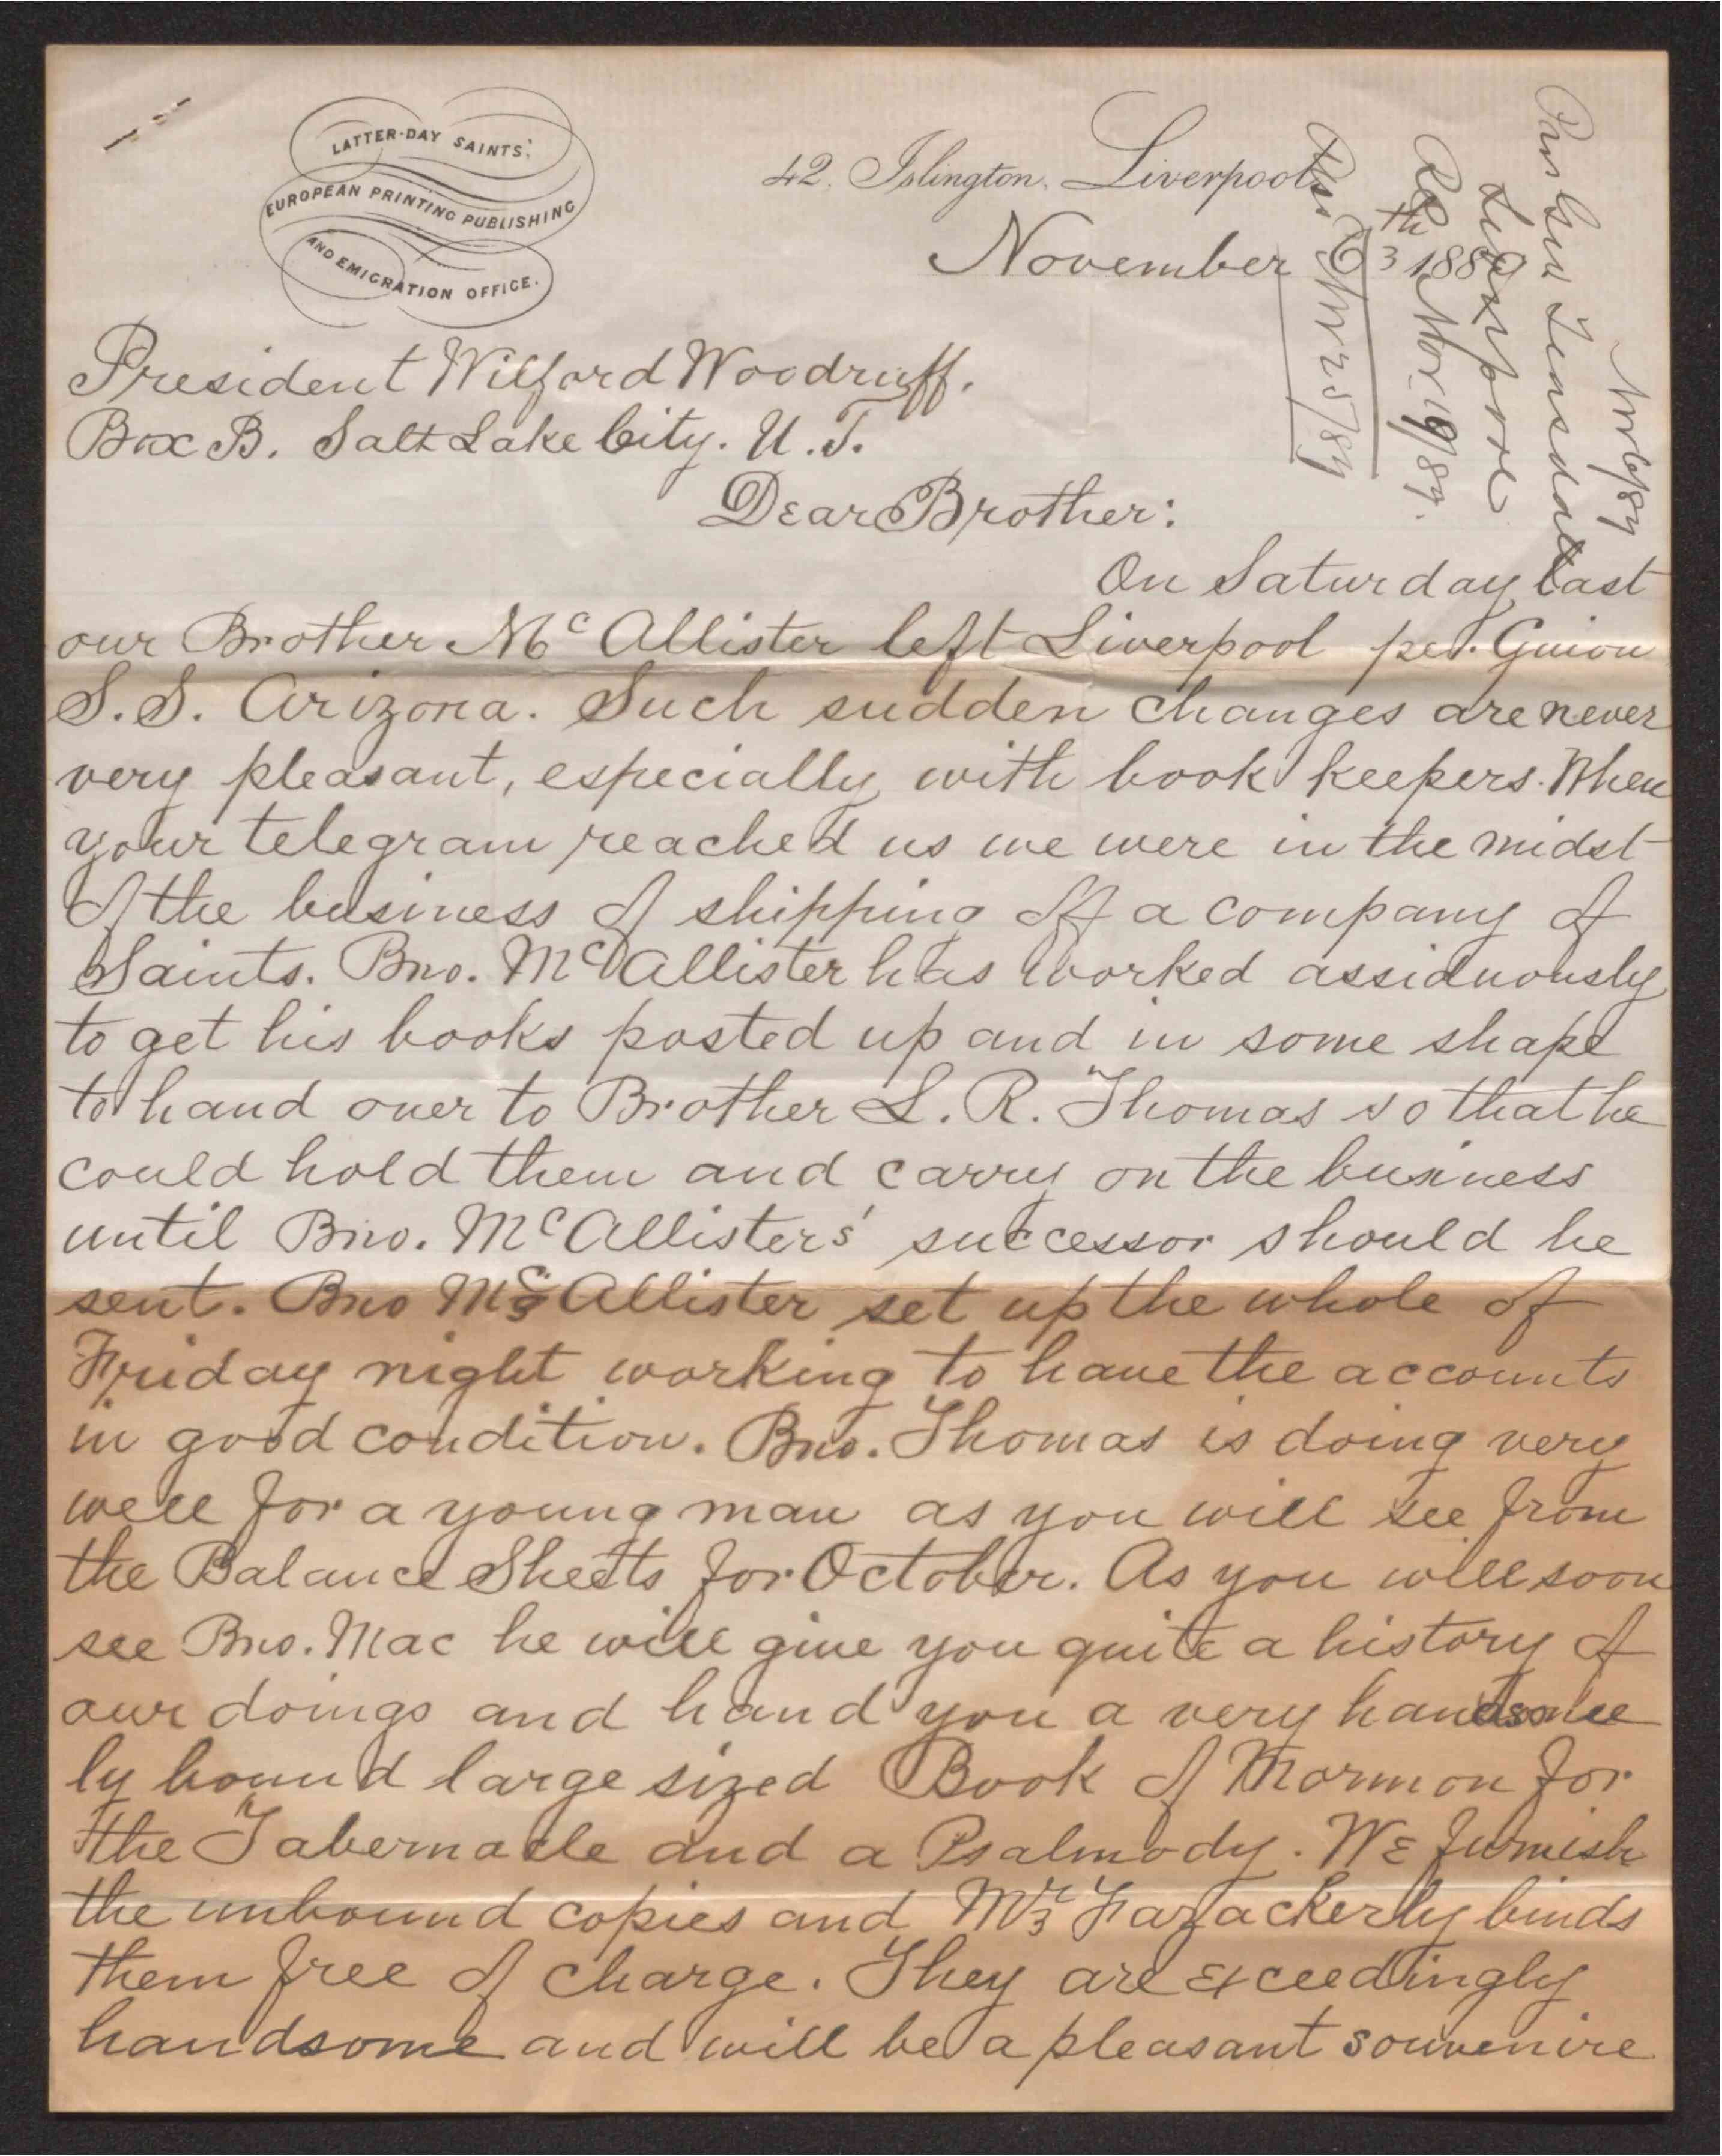 LATTER-DAY SAINTS'
EUROPEAN PRINTING PUBLISHING
AND EMIGRATION OFFICE.
42, Islington, Liverpool,
November 6th 1889
President Wilford Woodruff.
Box B. Salt Lake City. U. T.
Dear Brother:
On Saturday last
our Brother McAllister left Liverpool per. Guion
S.S. Arizona. Such sudden changes are never
very pleasant, especially with book keepers. When
your telegram reached us we were in the midst
of the business of shipping off a company of
Saints. Bro. McAllister has worked assiduously
to get his books posted up and in some shape
to hand over to Brother L. R. Thomas so that he
could hold them and carry on the business
until Bro. McAllisters' successor should be
sent. Bro McAllister set up the whole of
Friday night working to have the accounts
in good condition. Bro. Thomas is doing very
well for a young man as you will see from
the Balance Sheets for October. As you will soon
see Bro. Mac he will give you quite a history of
our doings and hand you a very handsome
ly bound large sized Book of Mormon for
the Tabernacle and a Psalmody. We furnish
the unbound copies and Mr Fazackerly binds
them free of charge. They are exceedingly
handsome and will be a pleasant souvenire
Nov 6/89
Liverpool
Nov 19/89.
Nov 25/89